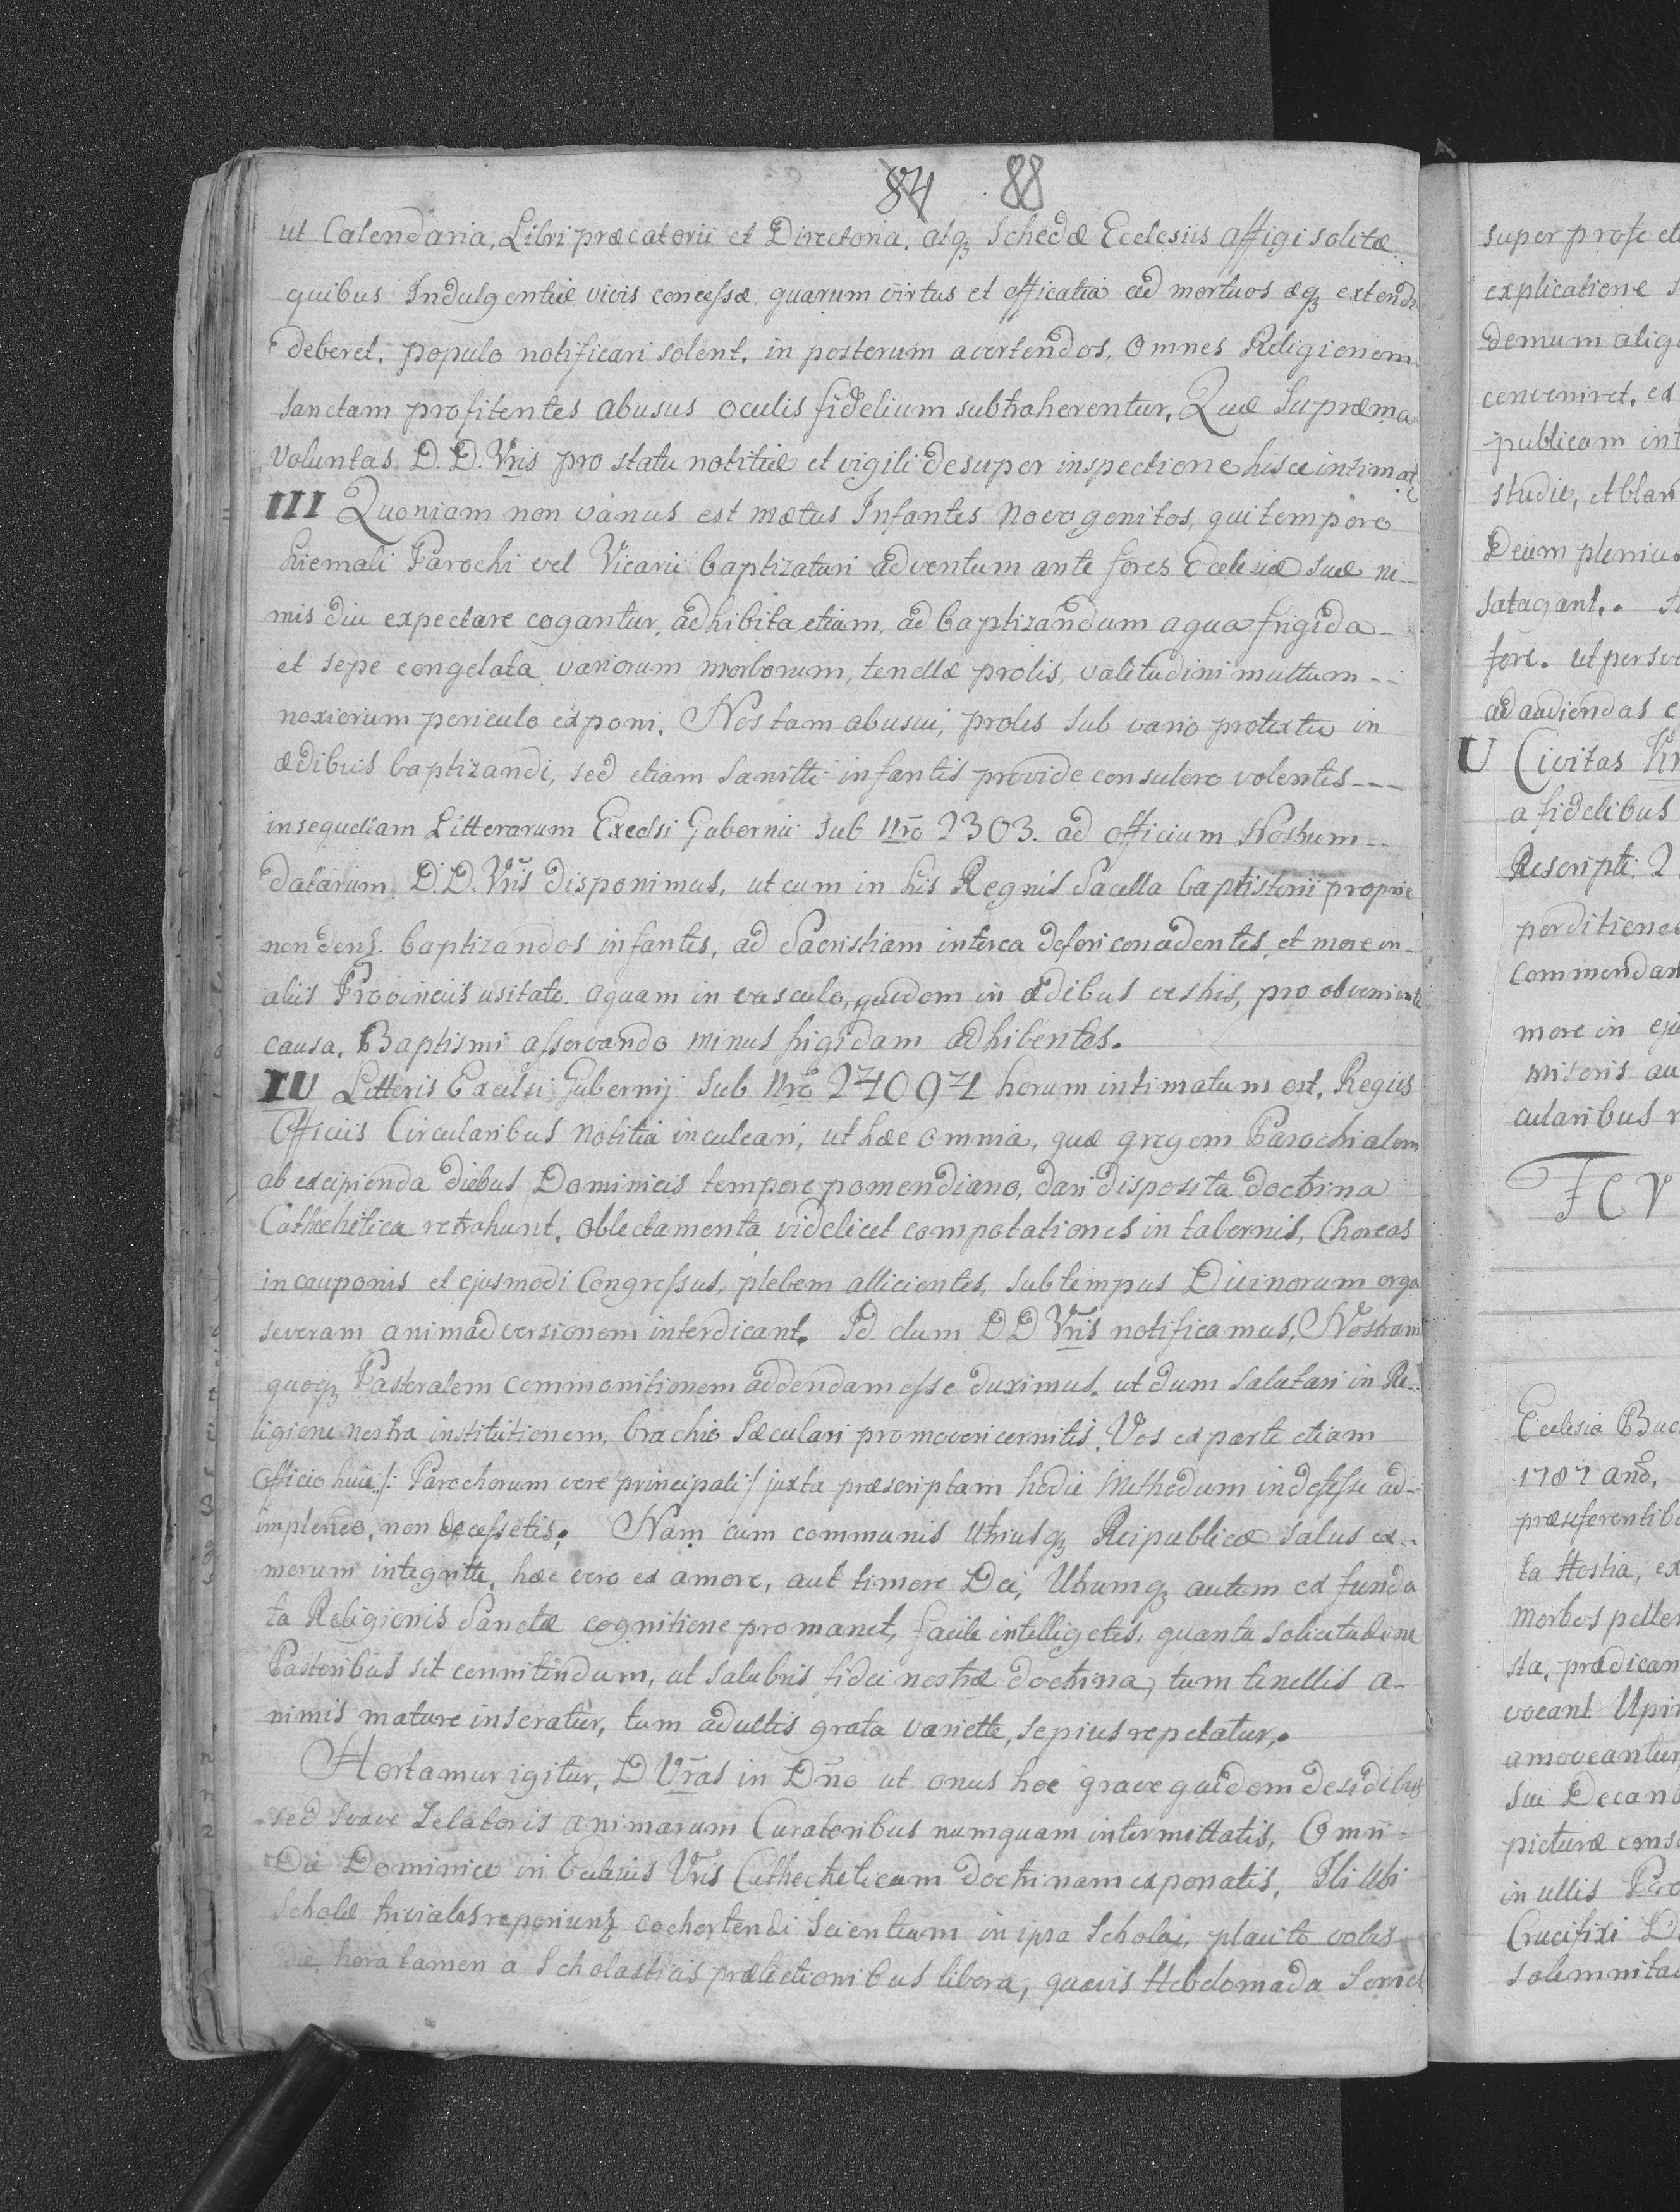 84 88
ut Calendaria, Libri præcatorii et Directoria, atqʒ Schedæ Ecclesiis affigi solitæ
quibus Indulgentiæ vivis concessæ quarum virtus et efficatia ad mortuos æqʒ extendi
deberet, populo notificari solent, in posterum avertendos, Omnes Religionem
Sanctam profitentes abusus oculis fidelium subtraherentur, Quæ Supræma
Voluntas D. D. Vris pro statu notitiæ et vigili desuper inspectione hisce intimatʒ
III Quoniam non vanus est mætus Infantes Noevogenitos, qui tempore
hiemali Parochi vel Vicarii baptizaturi adventum ante fores Ecclesiæ suæ ni-
mis diu expectare cogantur, adhibita etiam, ad baptizandum aqua frigida
et sepe congelata variorum morborum, tenellæ prolis, valitudini multum --
noxiorum periculo exponi. Nos tam abusui, proles sub vario protextu in
ædibus baptizandi, sed etiam Sanitti infantis provide consulere volentes ---
insequelam Litterarum Excelsi Gubernii sub Nro 2303. ad officium Nostrum --
datarum D.D. Vris disponimus, ut cum in his Regnis Sacella baptisterii proprie
non denʒ. baptizandos infantes, ad Sacristiam interea deferi concedentes, et more in-
aliis Provinciis usitato. aquam in vasculo, quidem in ædibus vestris, pro obveniente
causa, Baptismi asservando minus frigidam adhibentes.
IV Litteris Excelsi Gubernij sub Nro 27097 horum intimatum est, Regiis
Officiis Circularibus notitia inculcari, ut hæc omnia, quæ gregem Parochialem
ab excipienda diebus Dominicis tempore pomendiano, dari disposita doctrina
Cathechetica retrahunt, oblectamenta videlicet compotationes in tabernis, Choreas
in cauponis et ejusmodi Congressus, plebem allicientes, sub tempus Divinorum erga
severam animadversionem interdicant. Id dum DD Vris notificamus, Nostram
quoqʒ Pastoralem commonitionem addendam esse duximus, ut dum salutari in Re-
ligione nostra institutionem, brachio sæculari promoveri cernitis, Vos ex parte etiam
Officio huic /: Parochorum vere principali :/ juxta præscriptam hodie Methodum indefesse ad-
implendo, non decessetis. Nam cum communis Utriusqʒ Reipublicæ salus ex
morum integritte, hæc vero ex amore, aut timore Dei, Utrumqʒ autem ex funda
ta Religionis Sanctæ cognitione promanet, facile intelligetis, quanta solicitudine
Pastoribus sit connitendum, ut salubris fidei nostræ doctrina, tum tenellis a-
nimis mature inseratur, tum adultis grata variette, sepius repetatur.
Hortamur igitur, D Vras in Dno ut onus hoc grave quidem desidibus
sed suave Zelatoris animarum Curatoribus numquam intermittatis, Omni
Die Dominico in Ecclesiis Vris Cathecheticam doctrinam exponatis, Ibi Ubi
Scholæ triviales reperiunʒ cohortendi Scientiam in ipsa Schola, placito vobis
die, hora tamen a Scholasticis prælectionibus libera, quavis Hebdomada Semel
super prose et
explicatione
demum aliq
conveniret, ex
publicam int
studio, et blan
Deum plenius
satagant.
fore. ut perso
ad audiendas c
V Civitas
a fidelibus
Rescripti 2
perditione
Commendan
more in ej
miseris au
cularibus r
FCV
Ecclesia Buc
1787 ano,
præseferentib
ta Hostia, ex
Morbos pelle
sta, prædican
vocant Upir
amoveantur
sui Decano
picturæ cons
in ullis Par
Crucifixi D
solemnitae